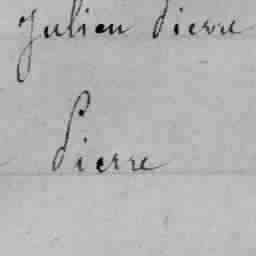 Julien Pierre
Pierre